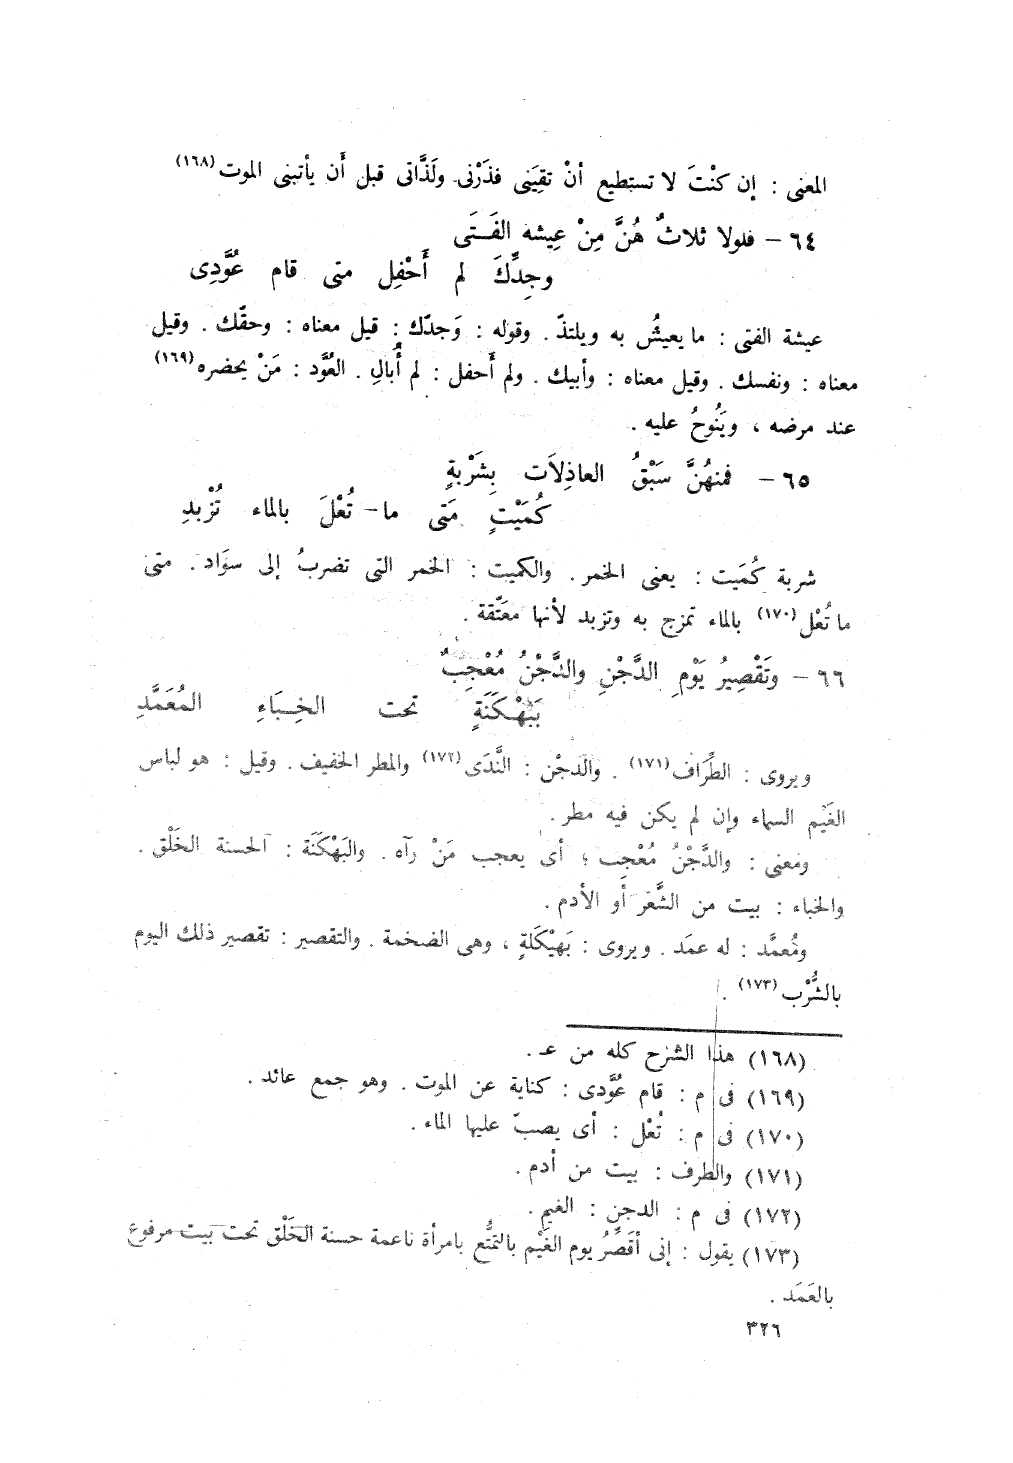 المعنى : إن كنْتَ لا تستطيع أنْ تقِيَنى فذَرْنى ولَذَّاتى قبل أَن يأتينى الموت (١٦٨)
٦٤ – فلولا ثلاثٌ هُنَّ مِنْ عِيشه الفَــتَى
وجِدِّكَ لم أَحْفِل متى قام عُوَّدِى
عيشة الفتى : ما يعيشُ به ويلتذّ . وقوله : وَجدّك : قيل معناه : وحقّك . وقيل
معناه : ونفسك . وقيل معناه : وأبيك . ولم أَحفل : لم أُبالِ . العُوَّد : مَنْ يحضره (١٦٩)
عند مرضه ، ويَنُوحُ عليه .
٦٥ – فمنهُنَّ سَبْقُ العاذِلاَت بِشَرْبةٍ
كُمَيْتٍ مَتى ما – تُعْلَ بالماء تُزْبدِ
شربة كُمَيت : يعنى الخمر . والكميت : الخمر التى تضربُ إلى سوَاد . متى
ما تُعْل (١٧٠) بالماء تمزج به وتزبد لأنها معَتّقة .
٦٦ – وتَقْصِيرُ يَوْمِ الدَّجْنِ والدَّجْنُ مُعْجِبٌ
بَبْهـْكَنَةٍ تحت الخِــبَاءِ المُعَمَّدِ
ويروى : الطِّرَاف (١٧١) . والدجْن : النَّدَى (١٧٢) والمطر الخفيف . وقيل : هو لباس
الغَيْم السماء وإن لم يكن فيه مطر .
ومعنى : والدَّجْنُ مُعْجِب ؛ أى يعجب مَنْ رآه . والبَهْكَنَة : الحسنة الخَلْق .
والخباء : بيت من الشَّعَر أَو الأدم .
ومُعمَّد : له عمَد . ويروى : بَهيْكَلةٍ ، وهى الضخمة . والتقصير : تقصير ذلك اليوم
بالشُّرْب (١٧٣) .
(١٦٨) هذا الشرح كله من عـ .
(١٦٩) فى م : قام عُوَّدى : كناية عن الموت . وهو جمع عائد .
(١٧٠) فى م : تُعْل : أى يصبّ عليها الماء .
(١٧١) والطرف : بيت من أدم .
(١٧٢) فى م : الدجن : الغيم .
(١٧٣) يقول : إنى أقَصِّرُ يوم الغَيْم بالتمتُّع بامرأة ناعمة حسنة الخَلْق تحت بيت مرفوع
بالعَمَد .
٣٢٦